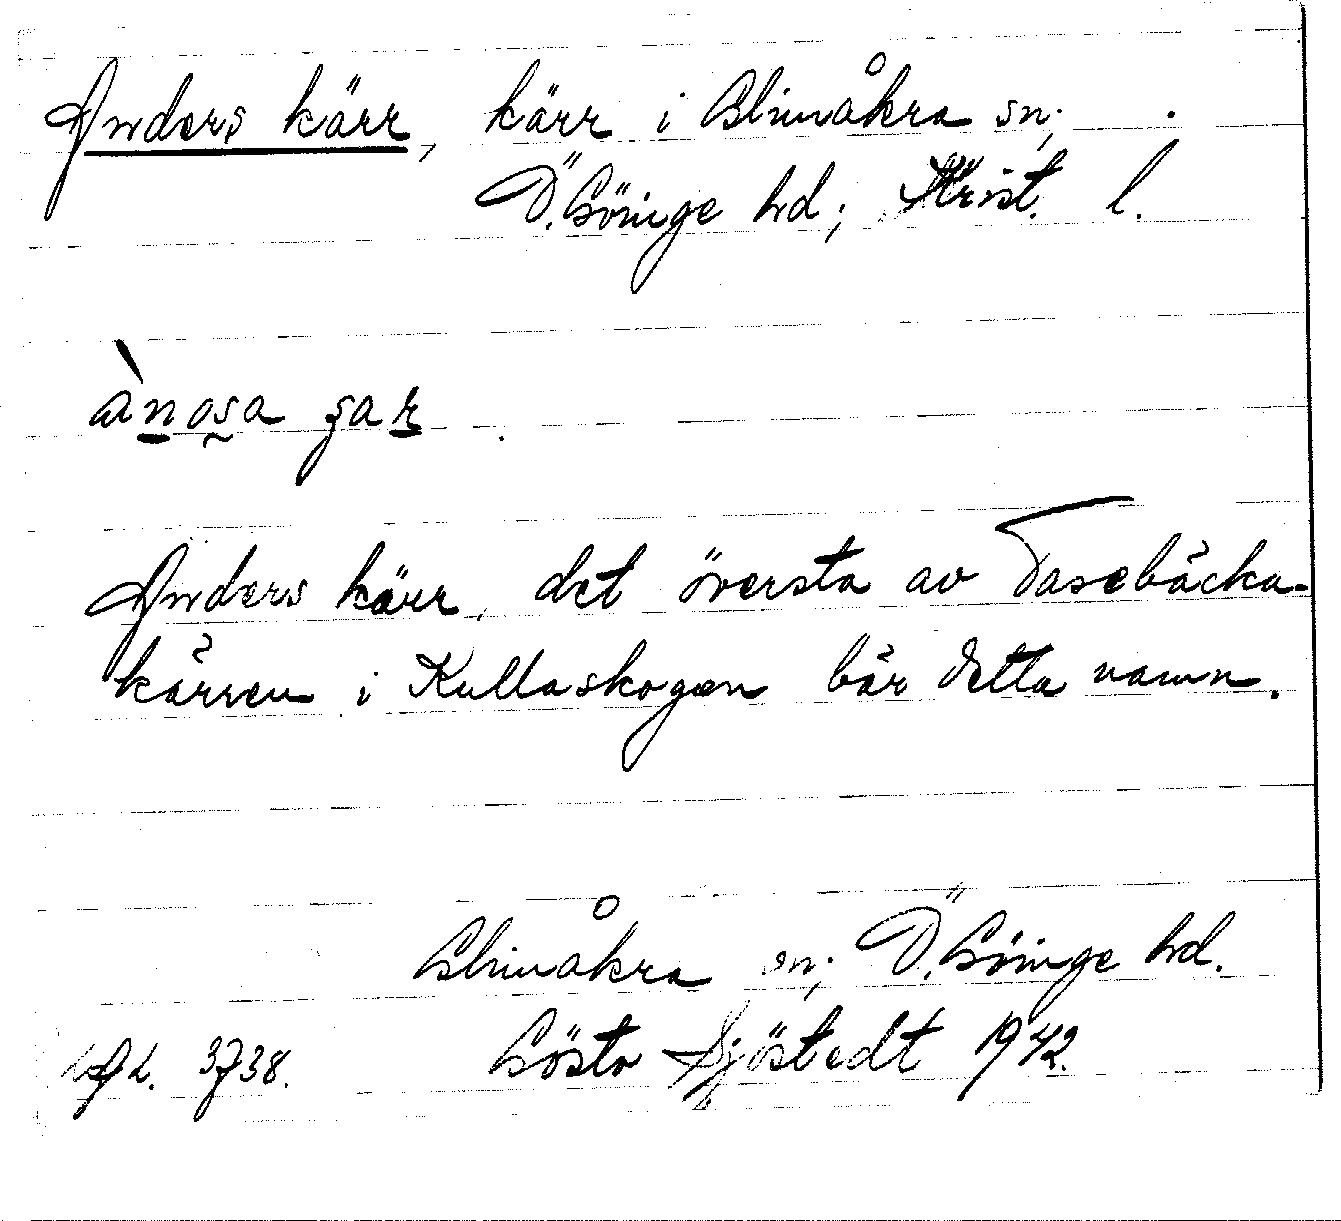 Anders kärr, kärr i Glimåkra sn;
Ö. Göinge hd; Krist. l.
Anders kärr, det översta av Dasebäcka-
kärren i Kullaskogen bär detta namn.
Glimåkra sn; Ö. Göinge hd.
3738. Gösta Sjöstedt 1942.